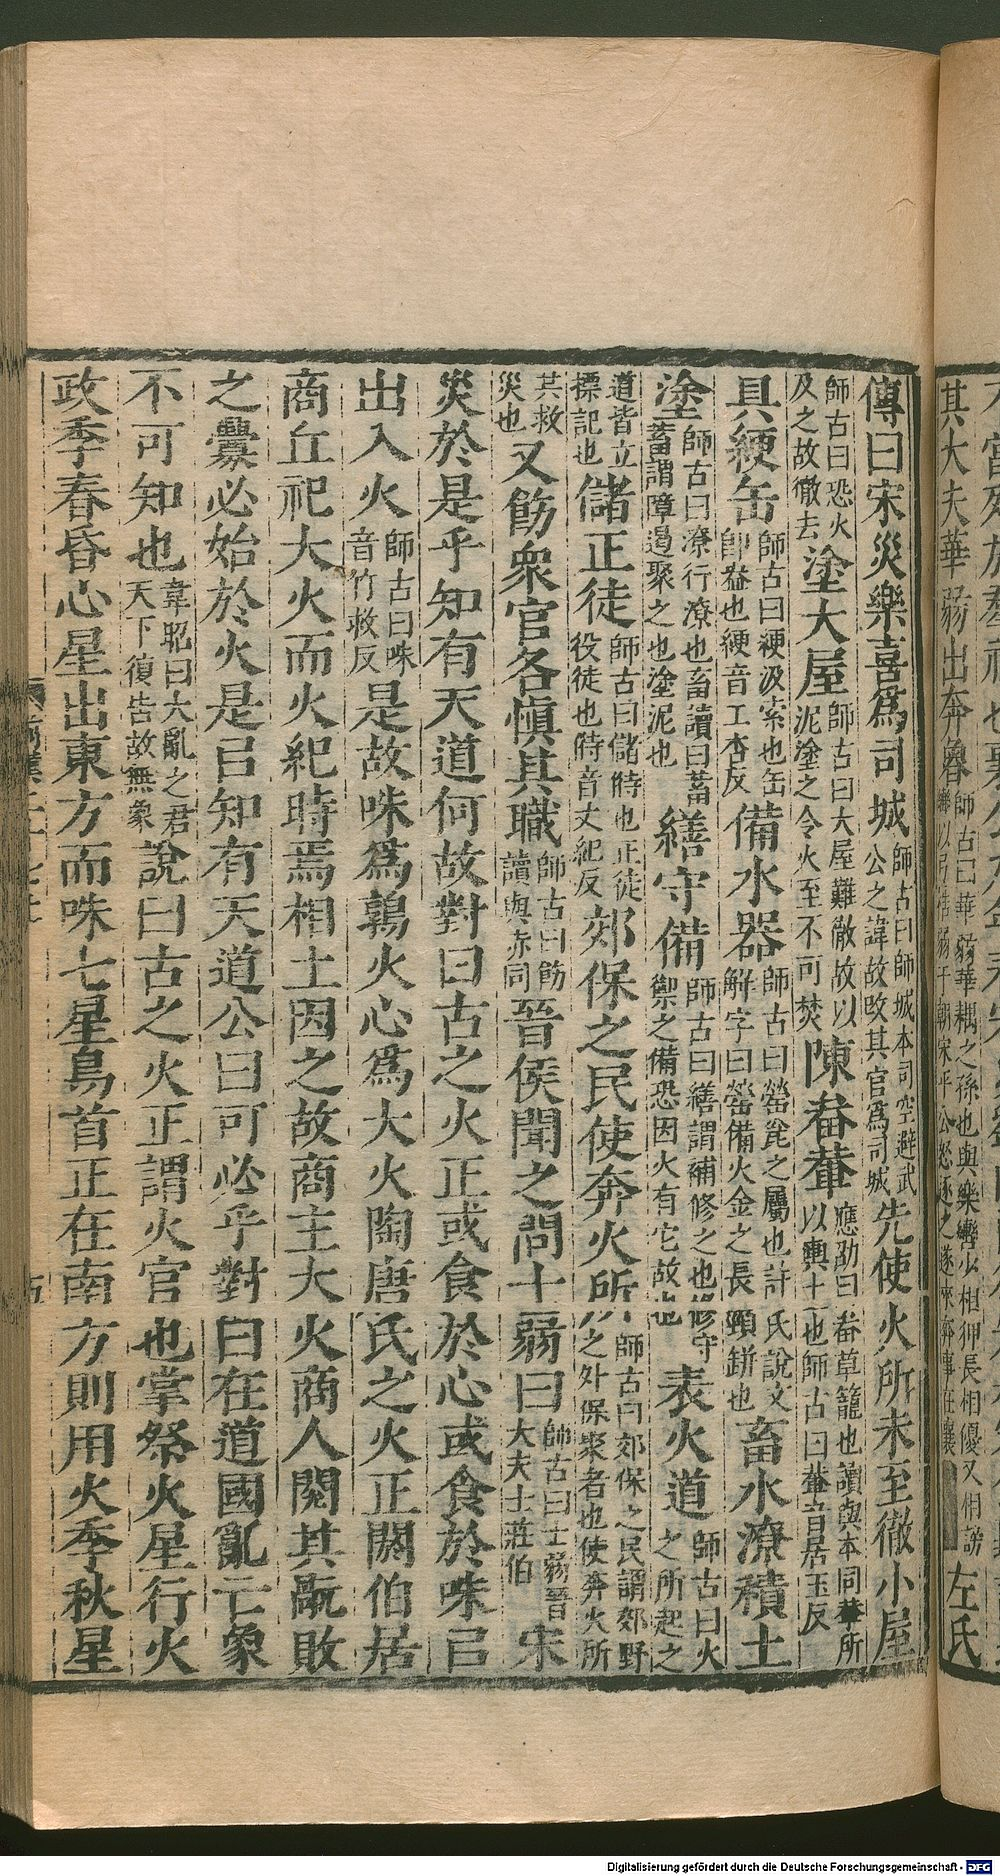 其大夫華弱出奔魯師古曰華弱華耦之孫也與樂轡少相狎長相優又相謗轡以弓梏弱于朝宋平公怒逐之遂來奔事在襄左氏
傳曰宋災樂喜爲司城師古曰師城本司空避武公之諱故改其官爲司城先使火所未至徹小屋
師古曰恐火及之故徹去塗大屋師古曰大屋難徹故以泥塗之令火至不可焚陳畚輂應劭曰畚草籠也讀與本同輂所以輿土也師古曰輂音居玉反
具綆缶師古曰綆汲索也缶卽盎也綆音工杏反備水器師古曰罃瓮之屬也許氏說文解字曰罃備火金之長頸缾也畜水潦積土
塗師古曰潦行潦也畜讀曰蓄蓄謂障遏聚之也塗泥也繕守備師古曰繕謂補修之也修守禦之備恐因火有它故也表火道師古曰火之所起之
道皆立標記也儲正徒師古曰儲偫也正徒役徒也偫音丈紀反郊保之民使奔火所師古曰郊保之民謂郊野之外保聚者也使奔火所
其救災也又飭衆官各愼其職師古曰飭讀與赤同晉侯聞之問士弱曰師古曰士弱晉大夫士莊伯宋
災於是乎知有天道何故對曰古之火正或食於心或食於咮㠯
出入火師古曰咮音竹救反是故咮爲鶉火心爲大火陶唐氏之火正閼伯居
商丘祀大火而火紀時焉相土因之故商主大火商人閱其禍敗
之釁必始於火是㠯知有天道公曰可必乎對曰在道國亂亡象
不可知也韋昭曰大亂之君天下復告故無象說曰古之火正謂火官也掌祭火星行火
政季春昏心星出東方而咮七星鳥首正在南方則用火季秋星
Digitalisierung gefördert durch die Deutsche Forschungsgemeinschaft - DFG